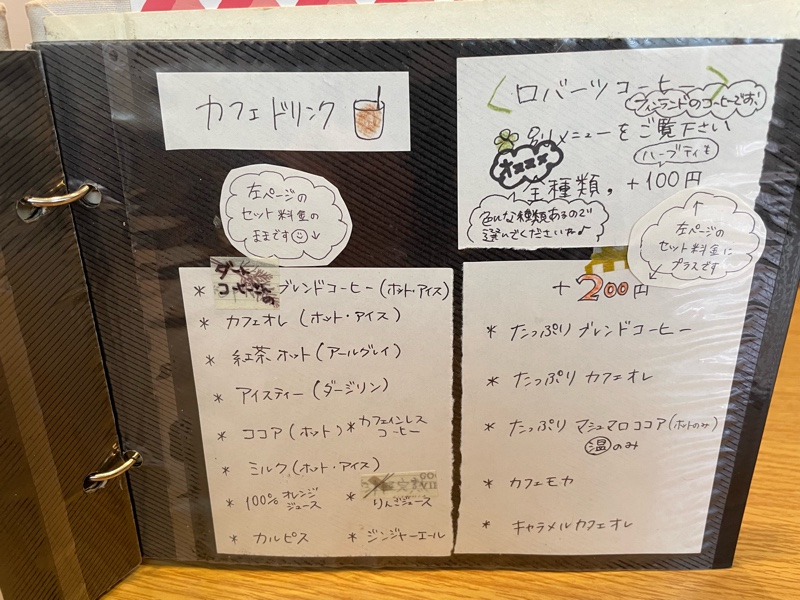 カフェドリンク
左ページの
セット料金の
ままです
* ダートコーヒーの ブレンドコーヒー(ホット・アイス)
* カフェオレ(ホット・アイス)
* 紅茶ホット(アールグレイ)
* アイスティー(ダージリン)
* ココア(ホット) * カフェインレスコーヒー
* ミルク(ホット・アイス)
* 100% オレンジジュース * りんごジュース
* カルピス * ジンジャーエール
ロバーツコーヒー
フィンランドのコーヒーです!
別メニューをご覧下さい
オススメ
ハーブティも
全種類, +100円
色んな種類あるので
選んでくださいね♪
↑
左ページの
セット料金に
プラスです
+200円
* たっぷり ブレンドコーヒー
* たっぷり カフェオレ
* たっぷり マシュマロココア(ホットのみ)
温のみ
* カフェモカ
* キャラメルカフェオレ